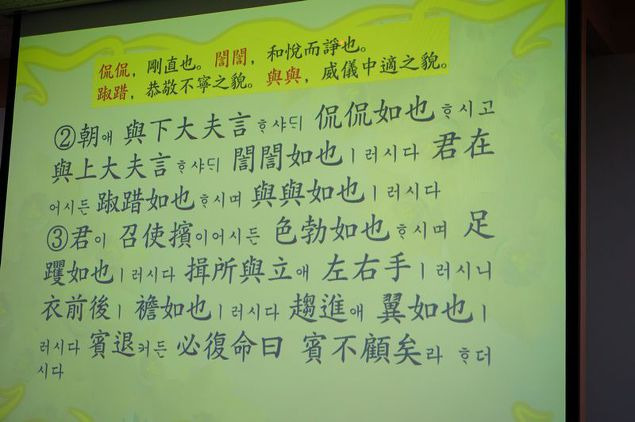 侃侃，剛直也。誾誾，和悅而諍也。
踧踖，恭敬不寧之貌。與與，威儀中適之貌。
②朝애 與下大夫言ᄒᆞ샤ᄃᆡ 侃侃如也ᄒᆞ시고
與上大夫言ᄒᆞ샤ᄃᆡ 誾誾如也ㅣ러시다 君在
어시든 踧踖如也ᄒᆞ시며 與與如也ㅣ러시다
③君이 召使擯이어시든 色勃如也ᄒᆞ시며 足
躩如也ㅣ러시다 揖所與立애 左右手ㅣ러시니
衣前後ㅣ 襜如也ㅣ러시다 趨進애 翼如也ㅣ
러시다 賓退커든 必復命曰 賓不顧矣라 ᄒᆞ더
시다